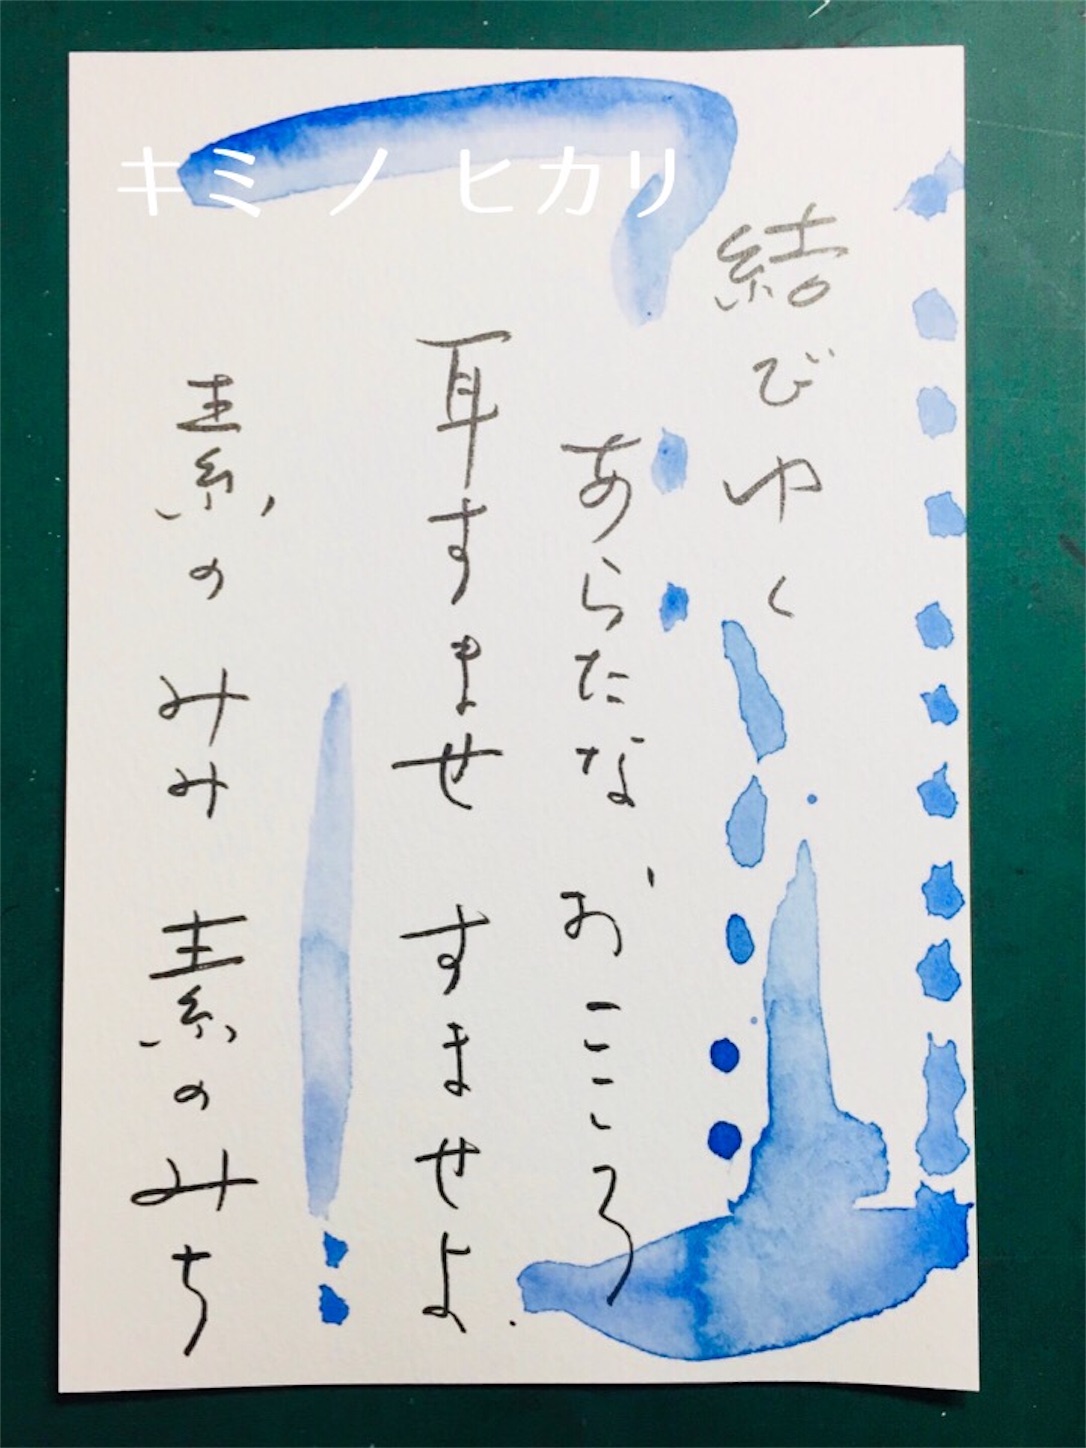 キミ ノ ヒカリ
結びゆく
あらたな おこころ
耳すませ すませよ
素の みみ 素のみち